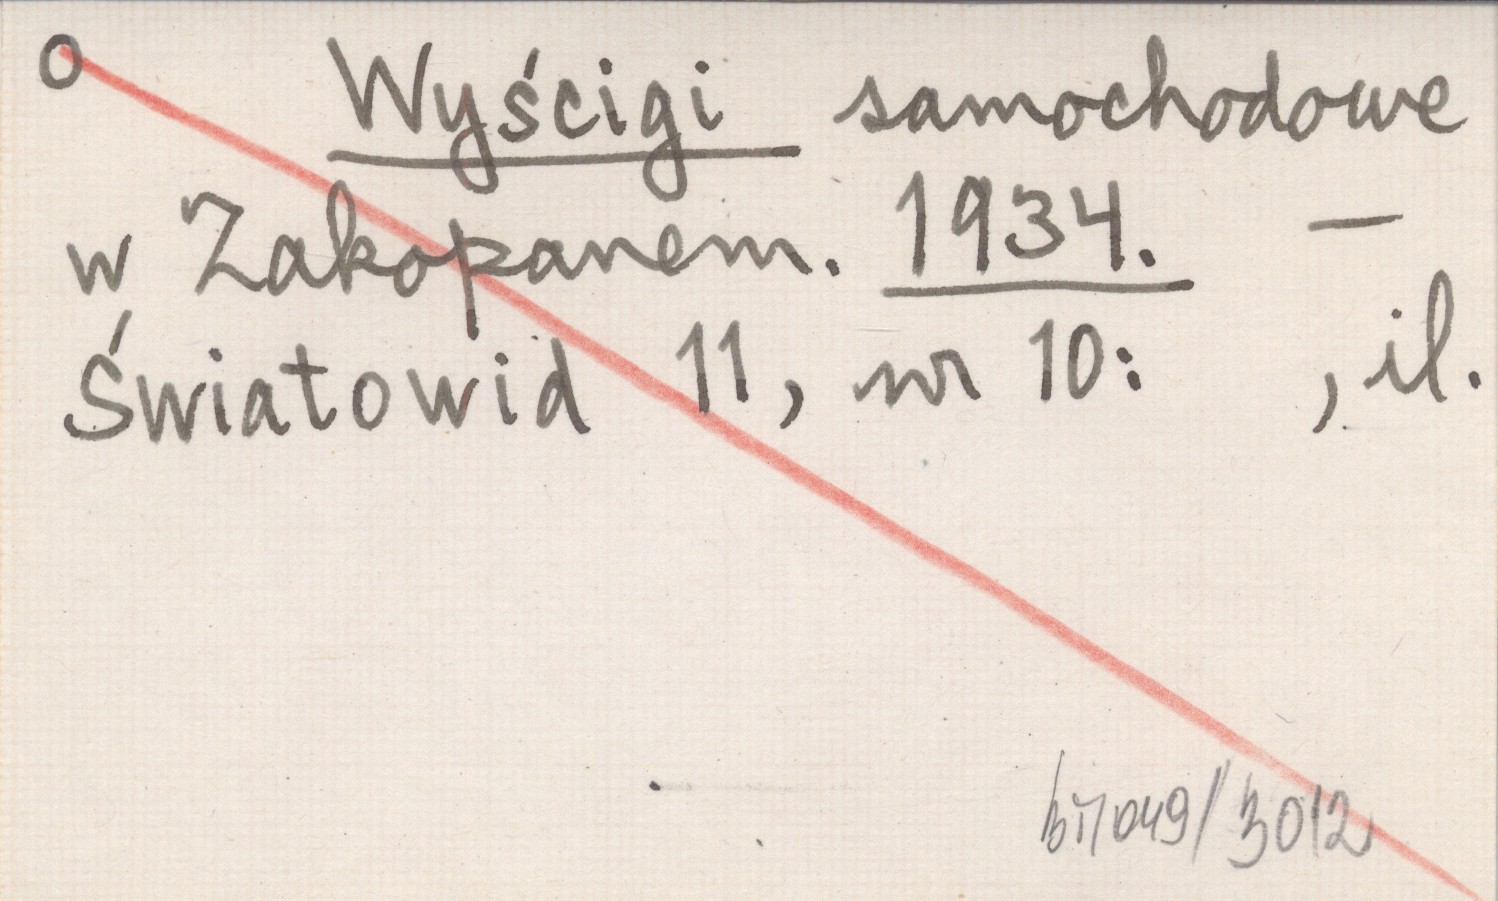 O Wyścigi samochodowe
w Zakopanem. 1934. —
Światowid 11, nr 10: , il.
/3012